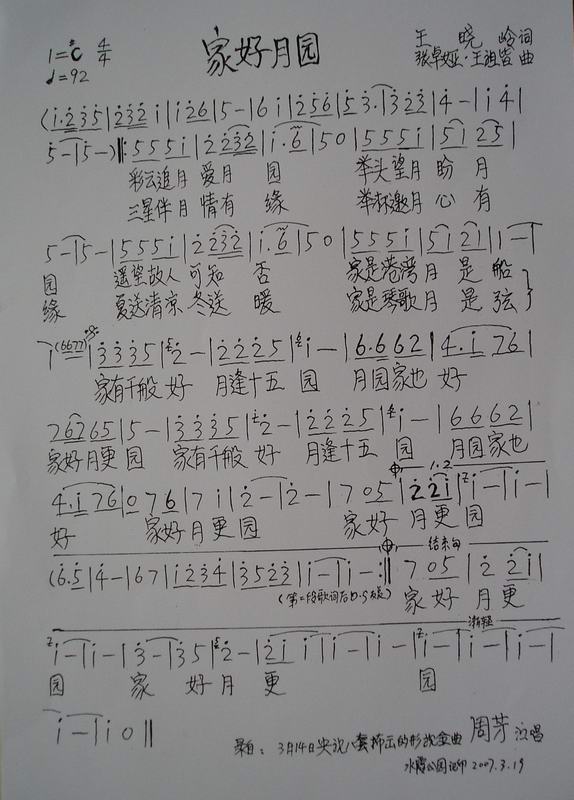 家好月园
1=#C 4/4
♩=92
王 晓 岭 词
张卓娅·王祖皆 曲
(i·2 3 5|2 3 2 i|i i 2 6|5 -|6 i|2 5 6|5 3·|3 2 3|4 -|i 4|
5 -|5 -)‖:5 5 5 i|2 2 3 2|i· 6|5 0|5 5 5 i|5 i 2 5|
彩云追月 爱月 园 举头望月 盼 月
三星伴月 情有 缘 举杯邀月 心 有
5 -|5 -|5 5 5 i|2 2 3 2|i· 6|5 0|5 5 5 i|5 i 2 i|1 -|
园 遥望故人 可知 否 家是港湾 月 是 船
缘 夏送清凉 冬送 暖 家是琴歌 月 是 弦
i (6677)|3 3 3 5|2 -|2 2 2 5|i -|6·6 6 2|4·i 7 6|
家有千般 好 月逢十五 园 月园家也 好
7 6 2 6 5|5 -|3 3 3 5|2 -|2 2 2 5|i -|6 6 6 2|
家好月更 园 家有千般 好 月逢十五 园 月园家也
1.2
4·i 7 6|0 7 6|7 i|2 -|2 -|7 0 5|2 2 i|i -|i -|
好 家好 月更园 家好 月更园
结束句
(6·5|4 -|6 7|i 2 3 4|3 5 2 3|i -|i -:‖ 7 0 5|2 2 i|
(第二段歌词后D.S反复) 家好 月更
渐轻
i -|i -|3 -|3 5|2 -|2 i i|i -|i -|i -|i -|i -|
园 家 好月 更 园
i -|i 0‖
录自：3月14日央视八套播出的形说金曲 周芽 演唱
水霞公园记印 2007.3.19